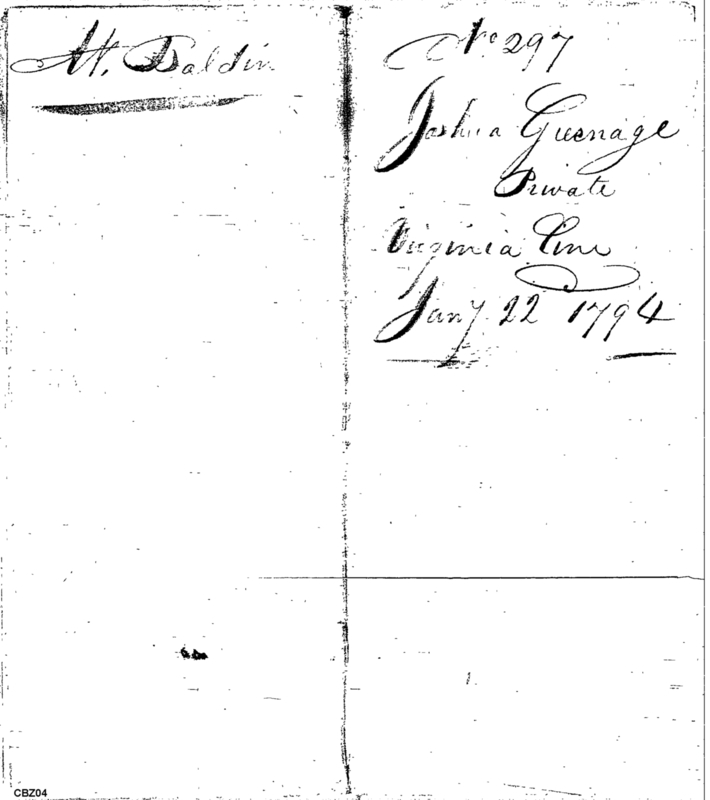 At. Baldin
No 297
Joshua Guenage
Private
Virginia Line
Jany 22 1794
CBZ04